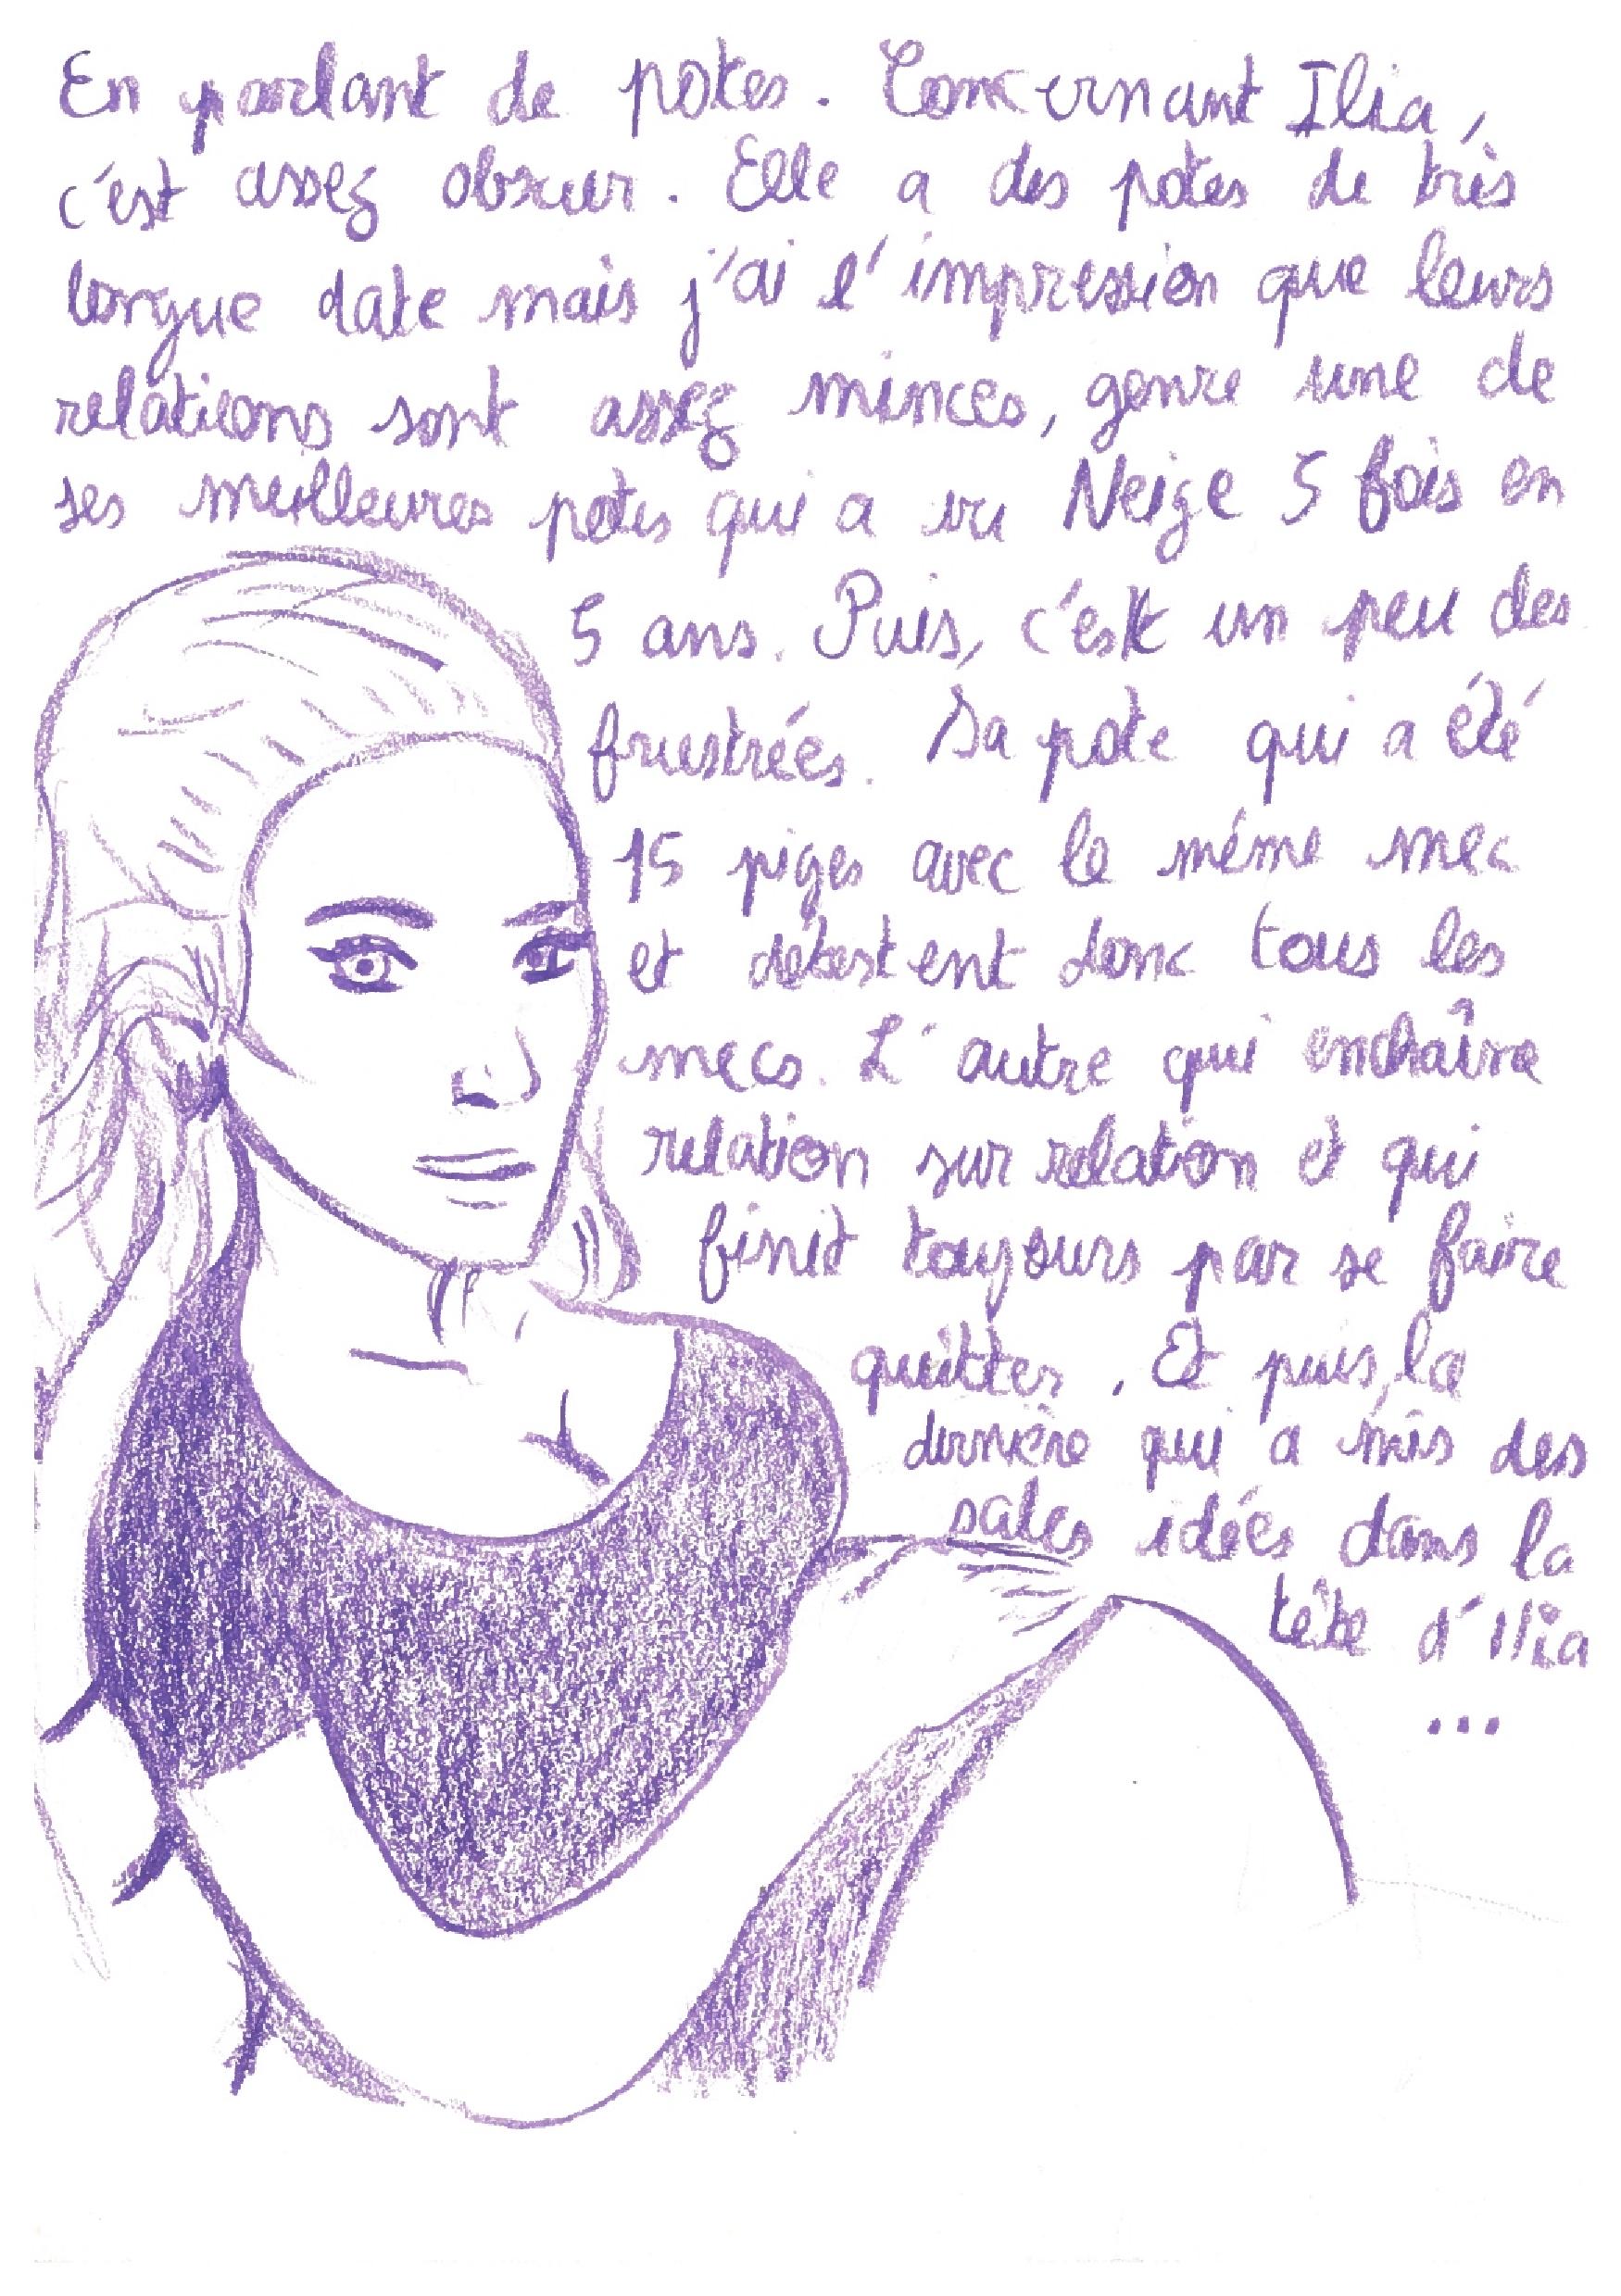 En parlant de potes. Concernant Ilia,
c'est assez obscur. Elle a des potes de très
longue date mais j'ai l'impression que leurs
relations sont assez minces, genre une de
ses meilleures potes qui a vu Neige 5 fois en
5 ans. Puis, c'est un peu des
frustrées. Sa pote qui a été
15 piges avec le même mec
et détestent donc tous les
mecs. L'autre qui enchaîne
relation sur relation et qui
finit toujours par se faire
quitter. Et puis, la
dernière qui a mis des
sales idées dans la
tête d'Ilia
...